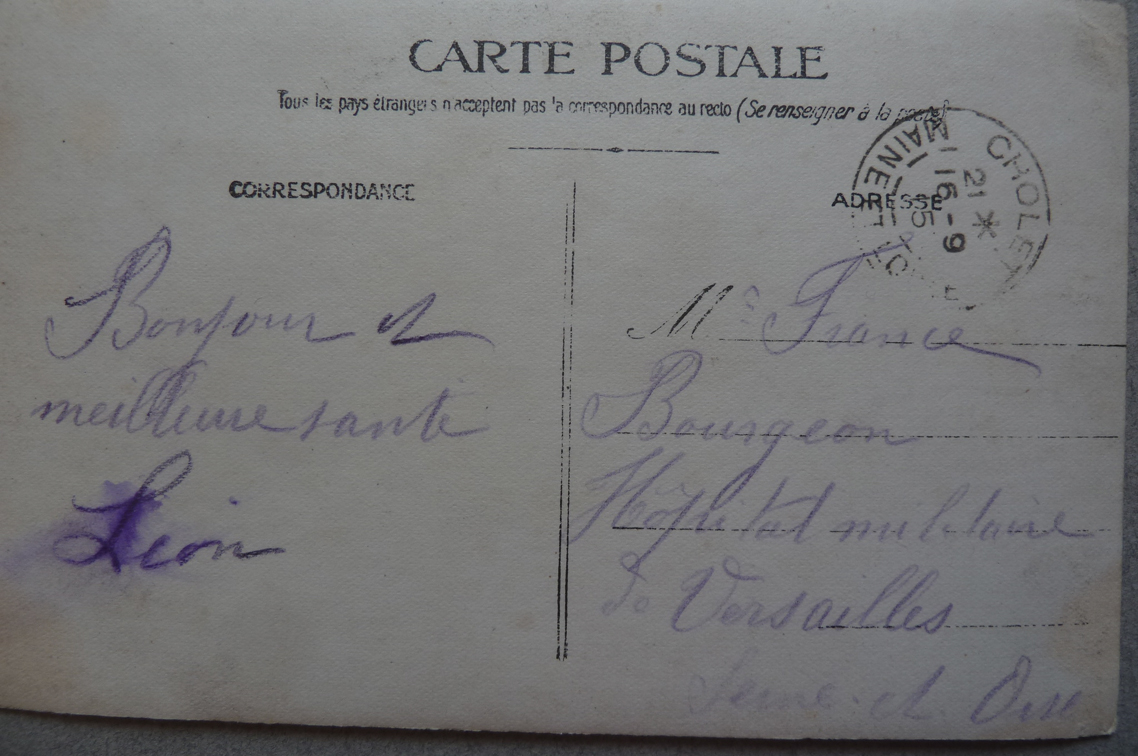 CARTE POSTALE
Tous les pays étrangers n'acceptent pas la correspondance au recto (Se renseigner à la poste)
CORRESPONDANCE
ADRESSE
CHOLET
MAINE-ET-LOIRE
21 *
16-9
15
Bonjour et
meilleure santé
Léon
M France
Bourgeon
Hôpital militaire
de Versailles
Seine-et-Oise